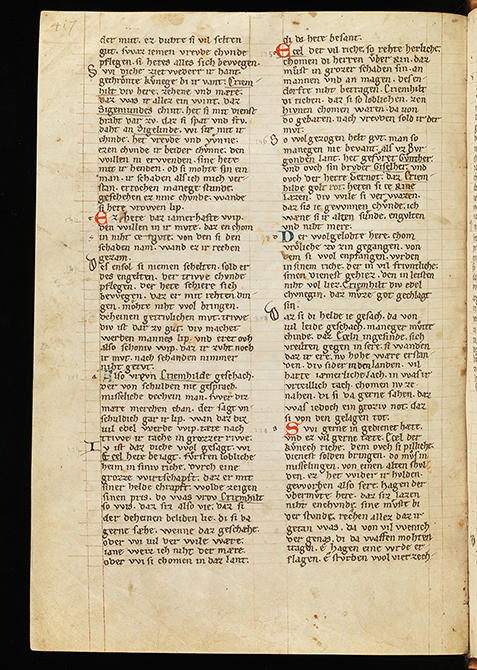 der mut. er dichte si vil selten
gut. swaz iemen vreude chunde
pflegen. si hetes alles sich bewegen.
Swi diche zwelf
gechronte kunige di ir want. Criem
hilt div here. zehene vnd mære.
daz was ir allez ein wint. daz
Sigemundes chint. het si mit dienst
braht dar zv. daz si spat vnd frv.
daht an Sigelinde. wi si mit ir
chinde. het vreude vnd wnne.
ir beider chunne. den
wolten si erwenden. sine hete
mit ir henden. ob si mohte sin ein
man. ir schaden als ich mich ver
stan. errochen manege stunde.
geschehen ez nine chunde. wande
si hete vrowen lip.
Ez hete daz iamerhafte wip.
den willen in ir mute. daz en chom
in niht ce gute. von den si den
schaden nam. wand ez ir rechen
gezam.
Des ensol si niemen schelten. sold er
des engelten. der triwe chunde
pflegen. der hete schiere sich
bewegen. daz er mit rehten din
gen. mohte niht wol bringen.
deheinen getriwlichen mut. triwe
div ist dar zv gut. div machet
werden mannes lip. vnd eret ovh
also schoniv wip. daz ir zvht noch
ir mvt. nach schanden nimmer
niht getvt.
Also vrovn Criemhilde geschach.
der von schulden nie gesprach.
misseliche dechein man. swer diz
mære merchen chan. der sagt vn
schuldich gar ir lip. wan daz diz
vil edel werde wip. tæte nach
triwe ir rache in grozzer riwe.
Iv ist daz diche wol gesagt. wi
Ecel hete beiagt. fursten lobliche
heim in siniv riche. dvrch eine
groze wirtschapft. daz er mit
siner helde chrapft. wolde zeigen
sinen pris. do was vrow Criemhilt
so wis. daz siz also vie. daz si
der deheinen beliden lie. di si da
gerne sæhe. wenne daz geschæhe.
oder wi vil der wile wære.
iane weiz ich niht der mære.
oder wi si chomen in daz lant.
di da hete besant.
Ecel der vil riche. so rehte herliche.
chomen di herren vber Rin. daz
must in grozer schaden sin. an
mannen vnd an magen. des en
dorfte niht betragen. Criemhilt
di richen. daz si so loblichen. zen
hivnen chomen waren. da von
do gebaren. nach vreuden sold ir der
mvt.
So wol gezogen helt gvt. man so
manegen nie bevant. als vz Bvr
gonden lant. het gefuret Gunther.
vnd ovch sin bruder Giselher. vnd
ovch der herre Gernot. daz Criem
hilde golt rot. heten si ce Rine
lazen. div wile si ver wazen.
daz sis ie gewnnen chunde. ich
wæne si ir alten sunde. engvlten
vnd niht mere.
Der wolgelobte here. chom
vrôliche zv zin gegangen. von
dem si wol enpfangen. wrden
in sinem riche. der in vil frivntliche.
sinen dienest gehiez. den in leisten
niht vol liez. Criemhilt div edel
chvnegin. daz mvze got geclagt
sin.
Daz si di helde ie gesach. da von
ivl leide geschach. maneger mvter
chinde. daz Eceln ingesinde. sich
vreuten gegen in sere. si wanden
daz ir ere. nv hohe wære erstan
den. div sider in den landen. vil
harte iæmerliche lach. in was ir
vrteillich tach. chomen nv ze
nahen. di si da gerne sahen. daz
was iedoch ein groziv not. daz
si von den gelagen tot.
Swi gerne in gedienet hæte.
vnd ez vil gerne tæte. Ecel der
kunech riche. dem ovch si pilliche.
dienest solden bringen. do mvs in
misselingen. von einen alten schvl
den. er het wider ir hulden.
geworben also sere. Hagen der
vbermvte here. daz siz lazen
niht enchunde. sine mvste bi
der stunde. rechen allez daz ir
getan was. da von vil wenich
der genas. di da waffen mohten
tragen. e hagen eine wrde er
slagen. e sturben wol vierzech